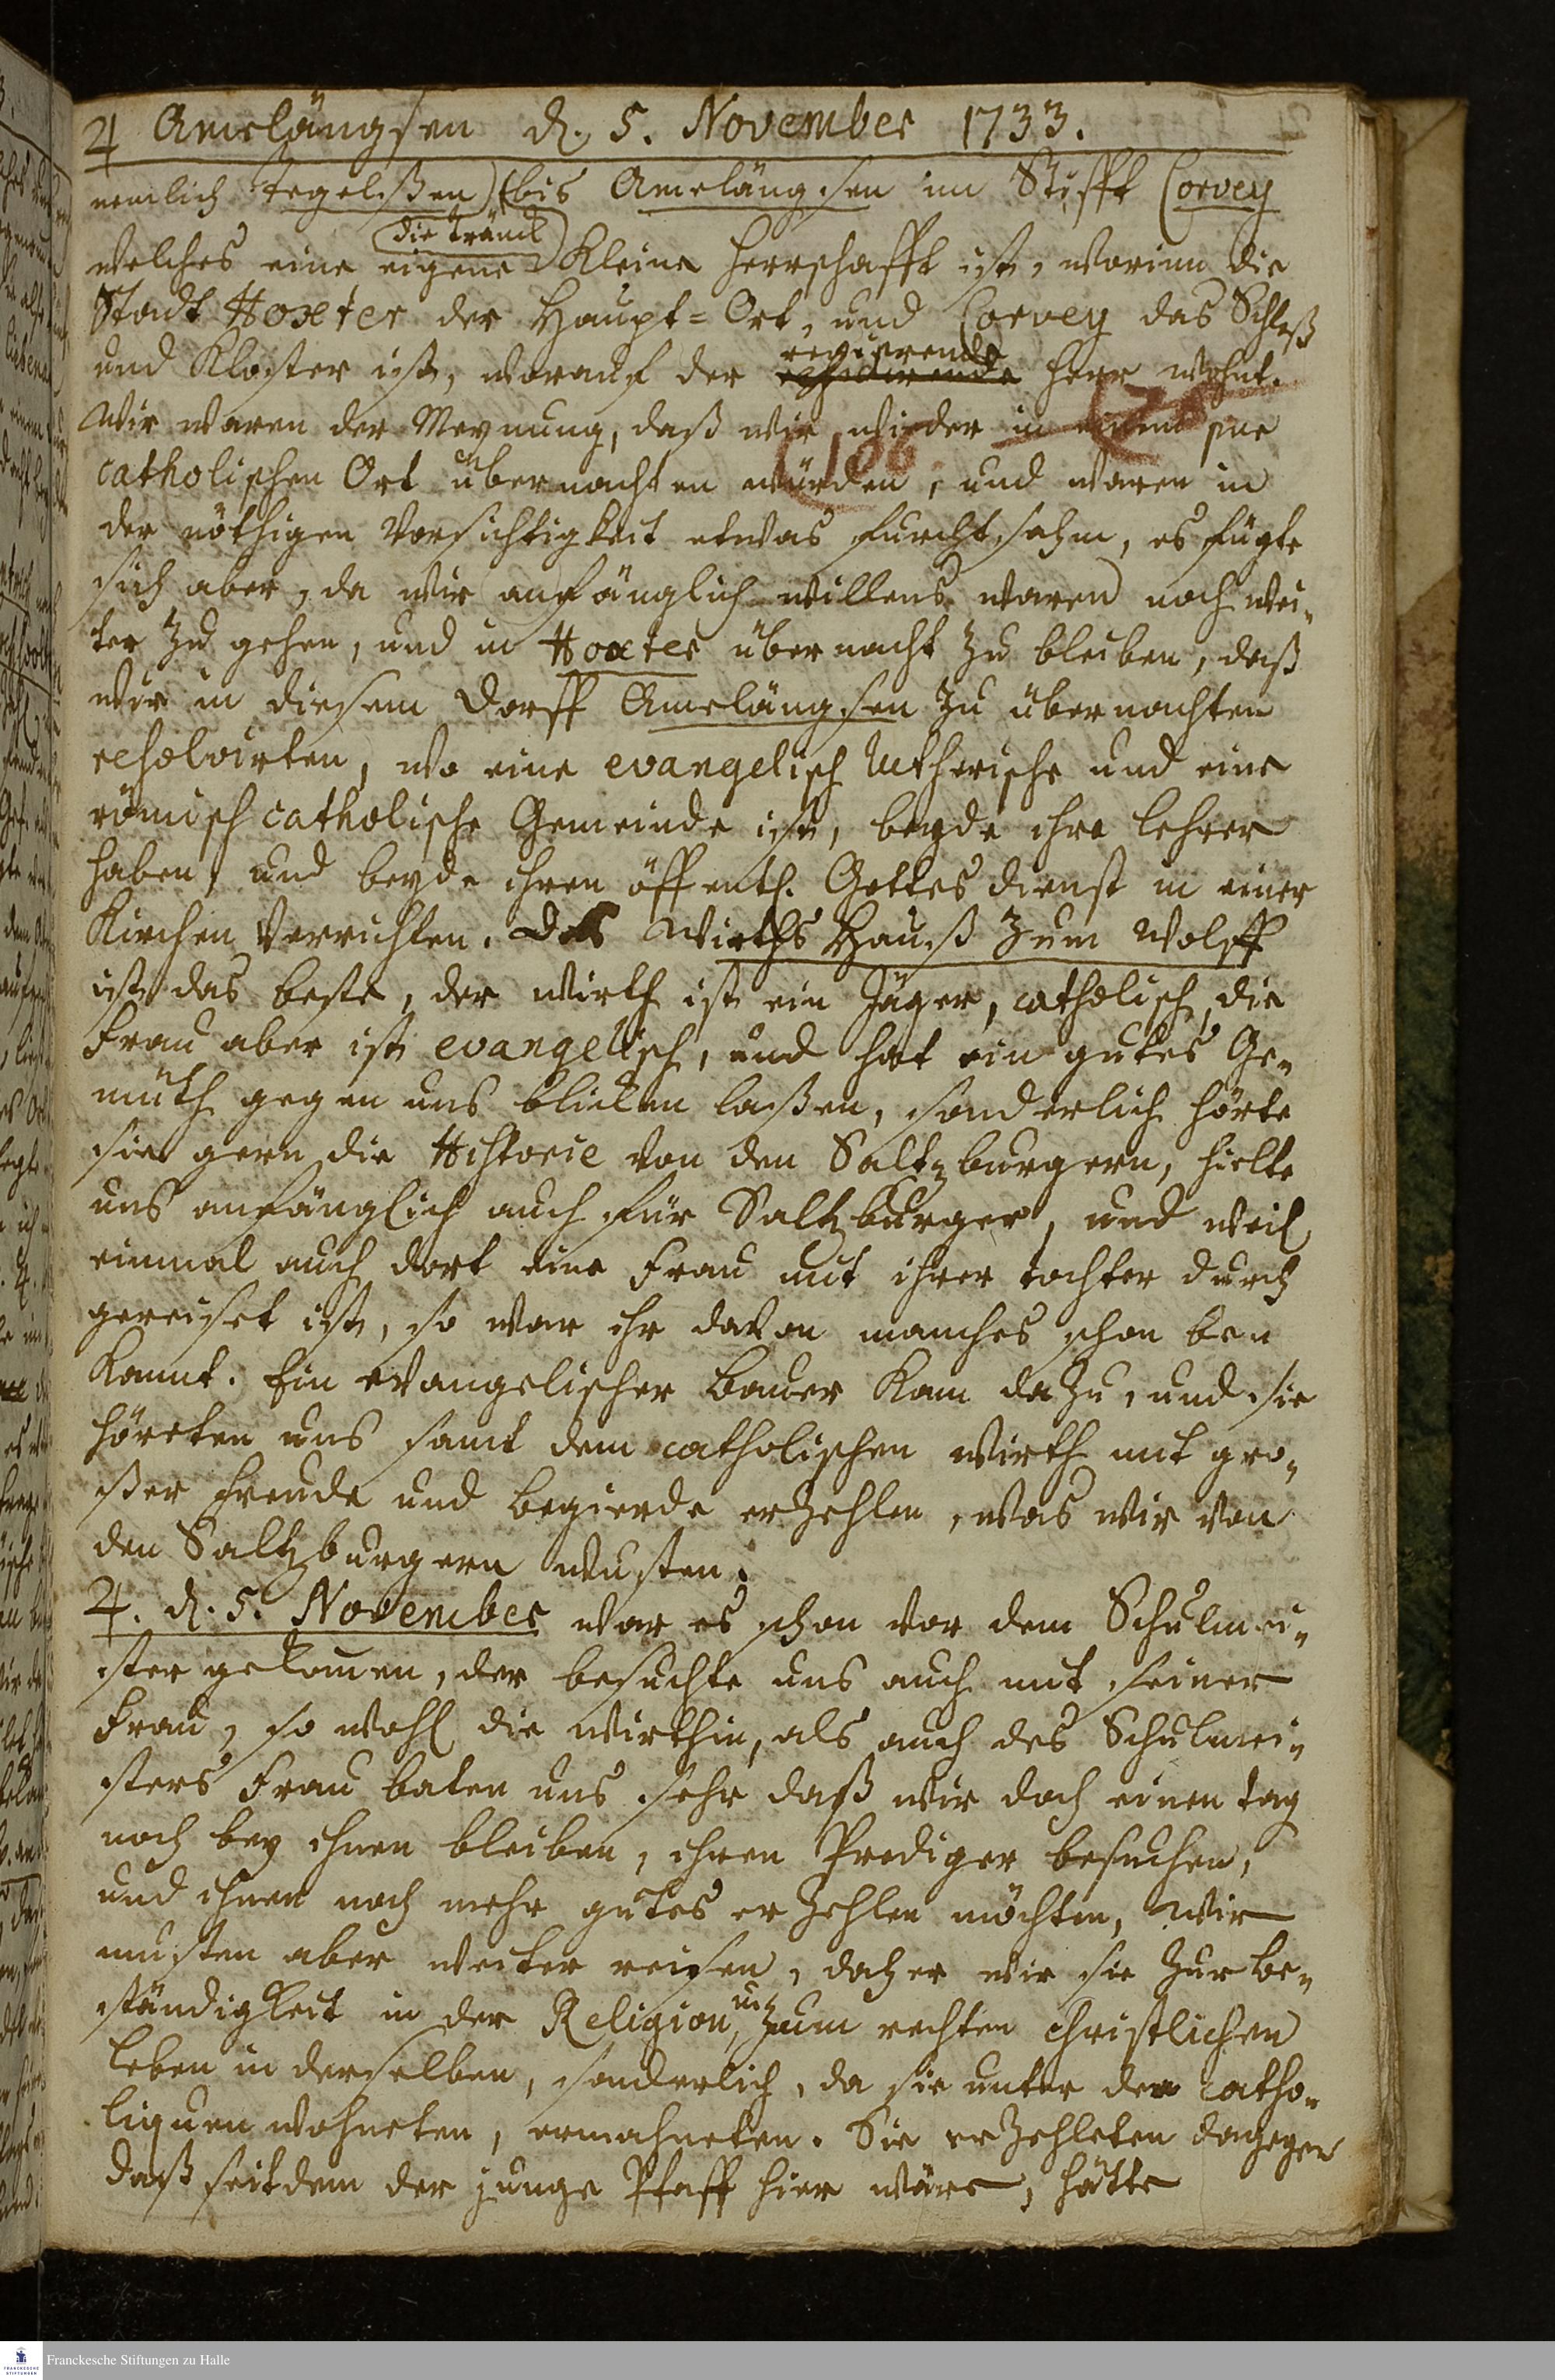 ♃ Amelängsen d. 5. November 1733.
nemlich Tegelißen) (bis Amelängsen im Stifft Corvey
die Tränck
welches eine eigene kleine Herrschafft ist, worinn die
Stadt Hoxter der Haupt-Ort, und Corvey das Schloß
regierende
und Kloster ist, worauf der residirende Herr wohnt.
Wir waren der Meynung, daß wir wieder in einem
catholischen Ort übernachten würden, und waren in
der nöthigen Vorsichtigkeit etwas furchtsahm, es fügte
sich aber, da wir anfänglich willens waren noch wei-
ter zu gehen, und in Hoxter übernacht zu bleiben, daß
wir in diesem Dorff Amelängsen zu übernachten
resolvirten, wo eine evangelisch lutherische und eine
römisch catholische Gemeinde ist, beyde ihre Lehrer
haben, und beyde ihren öffentl. Gottesdienst in einer
Kirchen verrichten. Das Wirths Hauß zum Wolff
ist das beste, der Wirth ist ein Jäger, catholisch, die
Frau aber ist evangelisch, und hat ein gutes Ge-
müth gegen uns blicken laßen, sonderlich hörte
sie gern die Historie von den Saltzburgern, hielte
uns anfänglich auch für Saltzburger, und weil
einmal auch dort eine Frau mit ihrer Tochter durch
gereiset ist, so war ihr davon manches schon be-
kannt. Ein evangelischer Bauer kam dazu, und sie
höreten uns samt dem catholischen Wirth mit gro-
ßer Freude und Begierde erzehlen, was wir von
den Saltzburgern wusten.
♃. d. 5. November war es schon vor dem Schulmei-
ster gekomen, der besuchte uns auch mit seiner
Frau, so wohl die Wirthin, als auch des Schulmei-
sters Frau baten uns sehr daß wir doch einen Tag
noch bey ihnen bleiben, ihren Prediger besuchen,
und ihnen noch mehr gutes erzehlen möchten, Wir
musten aber weiter reisen, daher wir sie zur Be-
ständigkeit in der Religion, u. zum rechten christlichen
Leben in derselben, sonderlich, da sie unter den Catho-
liquen wohneten, ermahneten. Sie erzehleten dagegen
daß seitdem der junge Pfaff hier wäre, hätte
Franckesche Stiftungen zu Halle